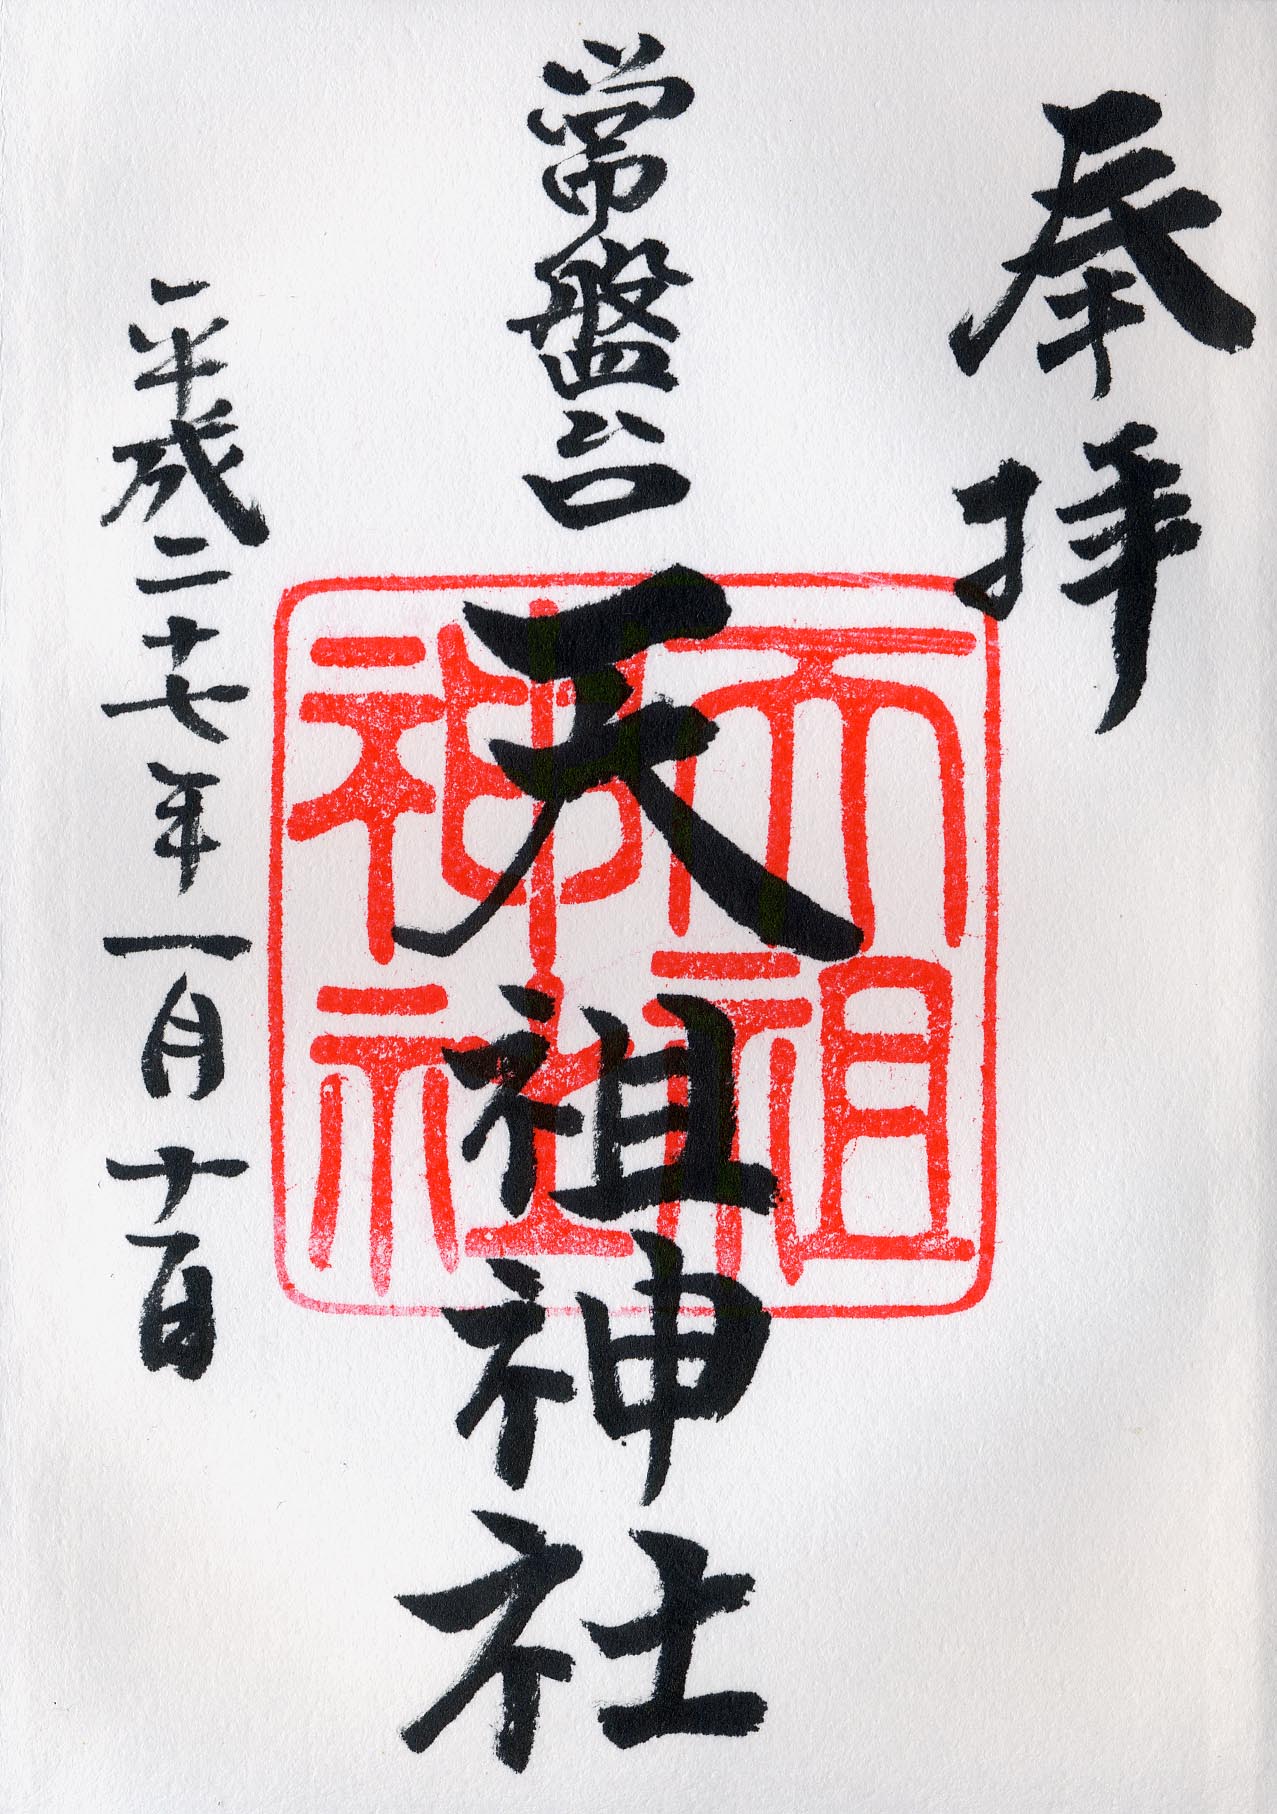 奉拝
常盤台
天祖神社
天祖神社
平成二十七年一月十一日